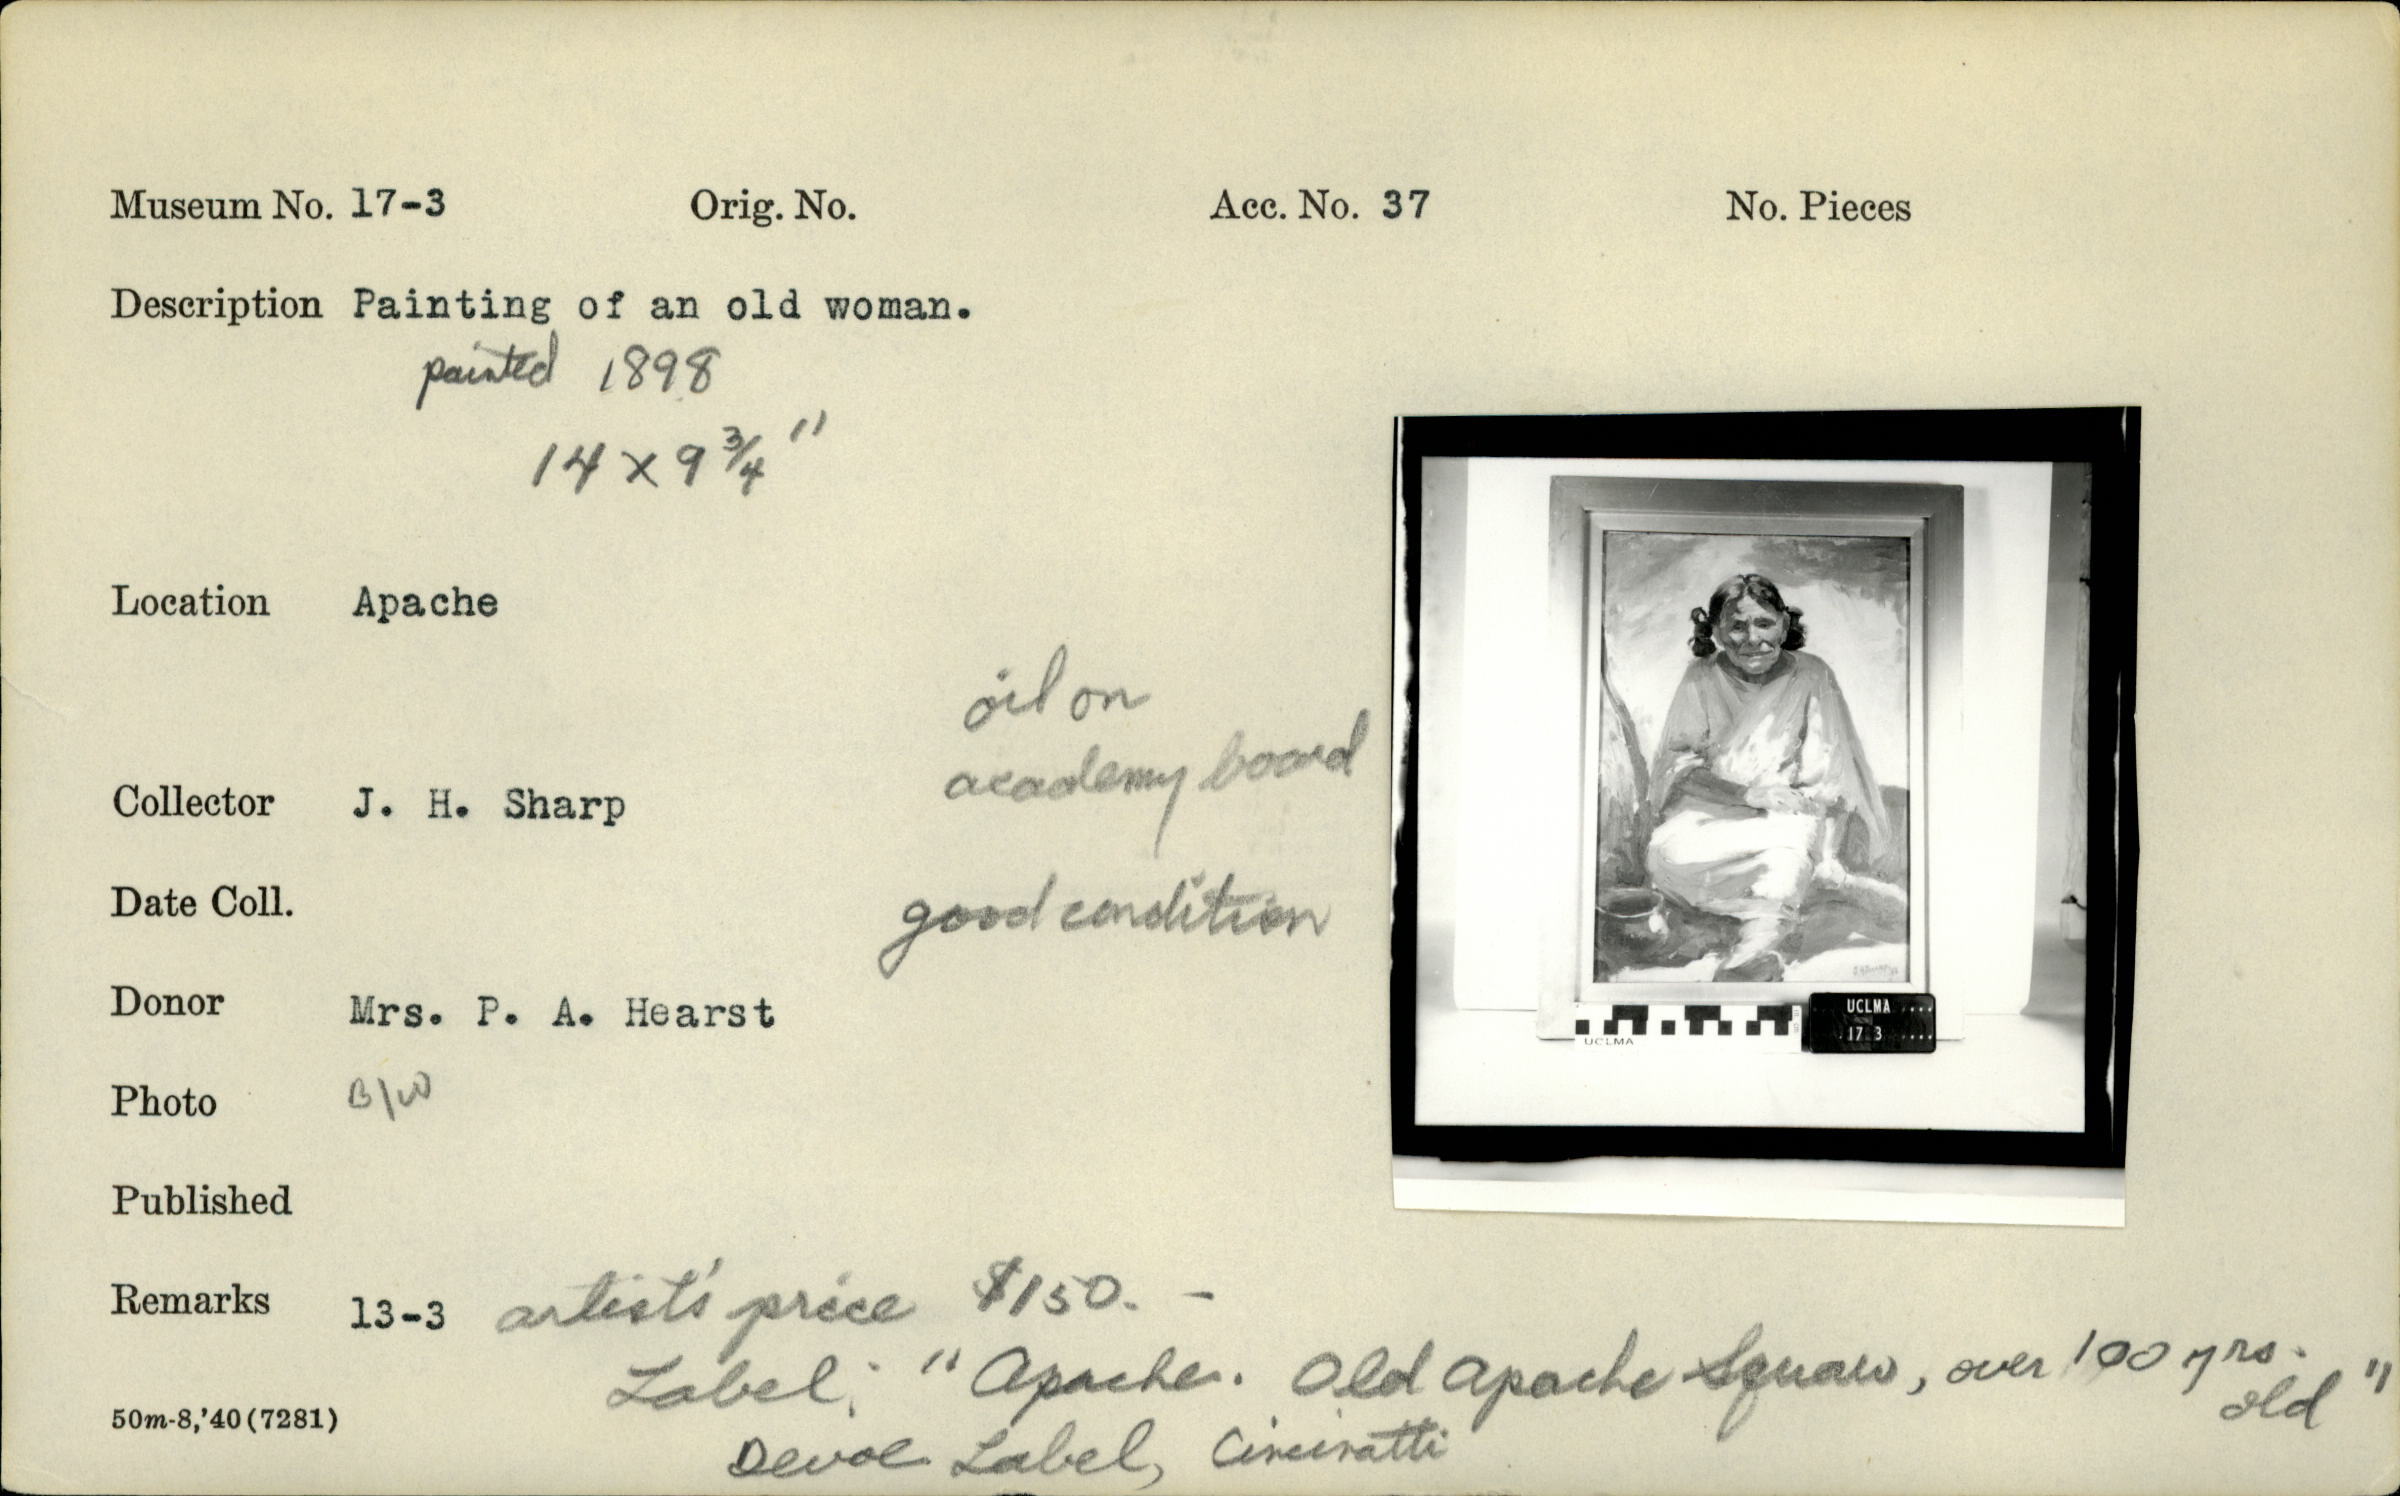 Museum No. 17-3 Orig. No. Acc. No. 37 No. Pieces
Description Painting of an old woman.
painted 1898
14 x 9 3/4"
Location Apache
oil on
academy board
Collector J. H. Sharp
Date Coll.
good condition
Donor Mrs. P. A. Hearst
UCLMA
17 3
UCLMA
Photo B/W
Published
Remarks 13-3 artist's price $150. -
Label: "Apache. Old Apache Squaw, over 100 yrs.
old"
50m-8,'40(7281)
Devoe Label, Cincinatti